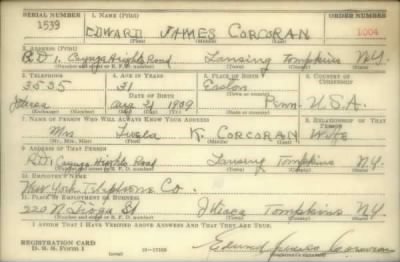 SERIAL NUMBER 1. NAME (Print) ORDER NUMBER
1539 EDWARD JAMES CORCORAN 1004
(First) (Middle) (Last)
2. ADDRESS (Print)
R.D. 1. Cayuga Heights Road Lansing Tompkins N.Y.
3. TELEPHONE 4. AGE IN YEARS 5. PLACE OF BIRTH 6. COUNTRY OF CITIZENSHIP
3535 31 Easton
DATE OF BIRTH (Town or county)
Ithaca Aug 21 1909 Penn. U.S.A.
(Exchange) (Number) (Mo.) (Day) (Yr.) (State or country)
7. NAME OF PERSON WHO WILL ALWAYS KNOW YOUR ADDRESS 8. RELATIONSHIP OF THAT PERSON
Mrs K. CORCORAN Wife
(Mr., Mrs., Miss) (First) (Middle) (Last)
9. ADDRESS OF THAT PERSON
R.D.1 Cayuga Heights Road Lansing Tompkins N.Y.
10. EMPLOYER'S NAME
New York Telephone Co.
11. PLACE OF EMPLOYMENT OR BUSINESS
220 N. Tioga St Ithaca Tompkins NY
I AFFIRM THAT I HAVE VERIFIED ABOVE ANSWERS AND THAT THEY ARE TRUE.
REGISTRATION CARD
D. S. S. Form 1 Edward James Corcoran